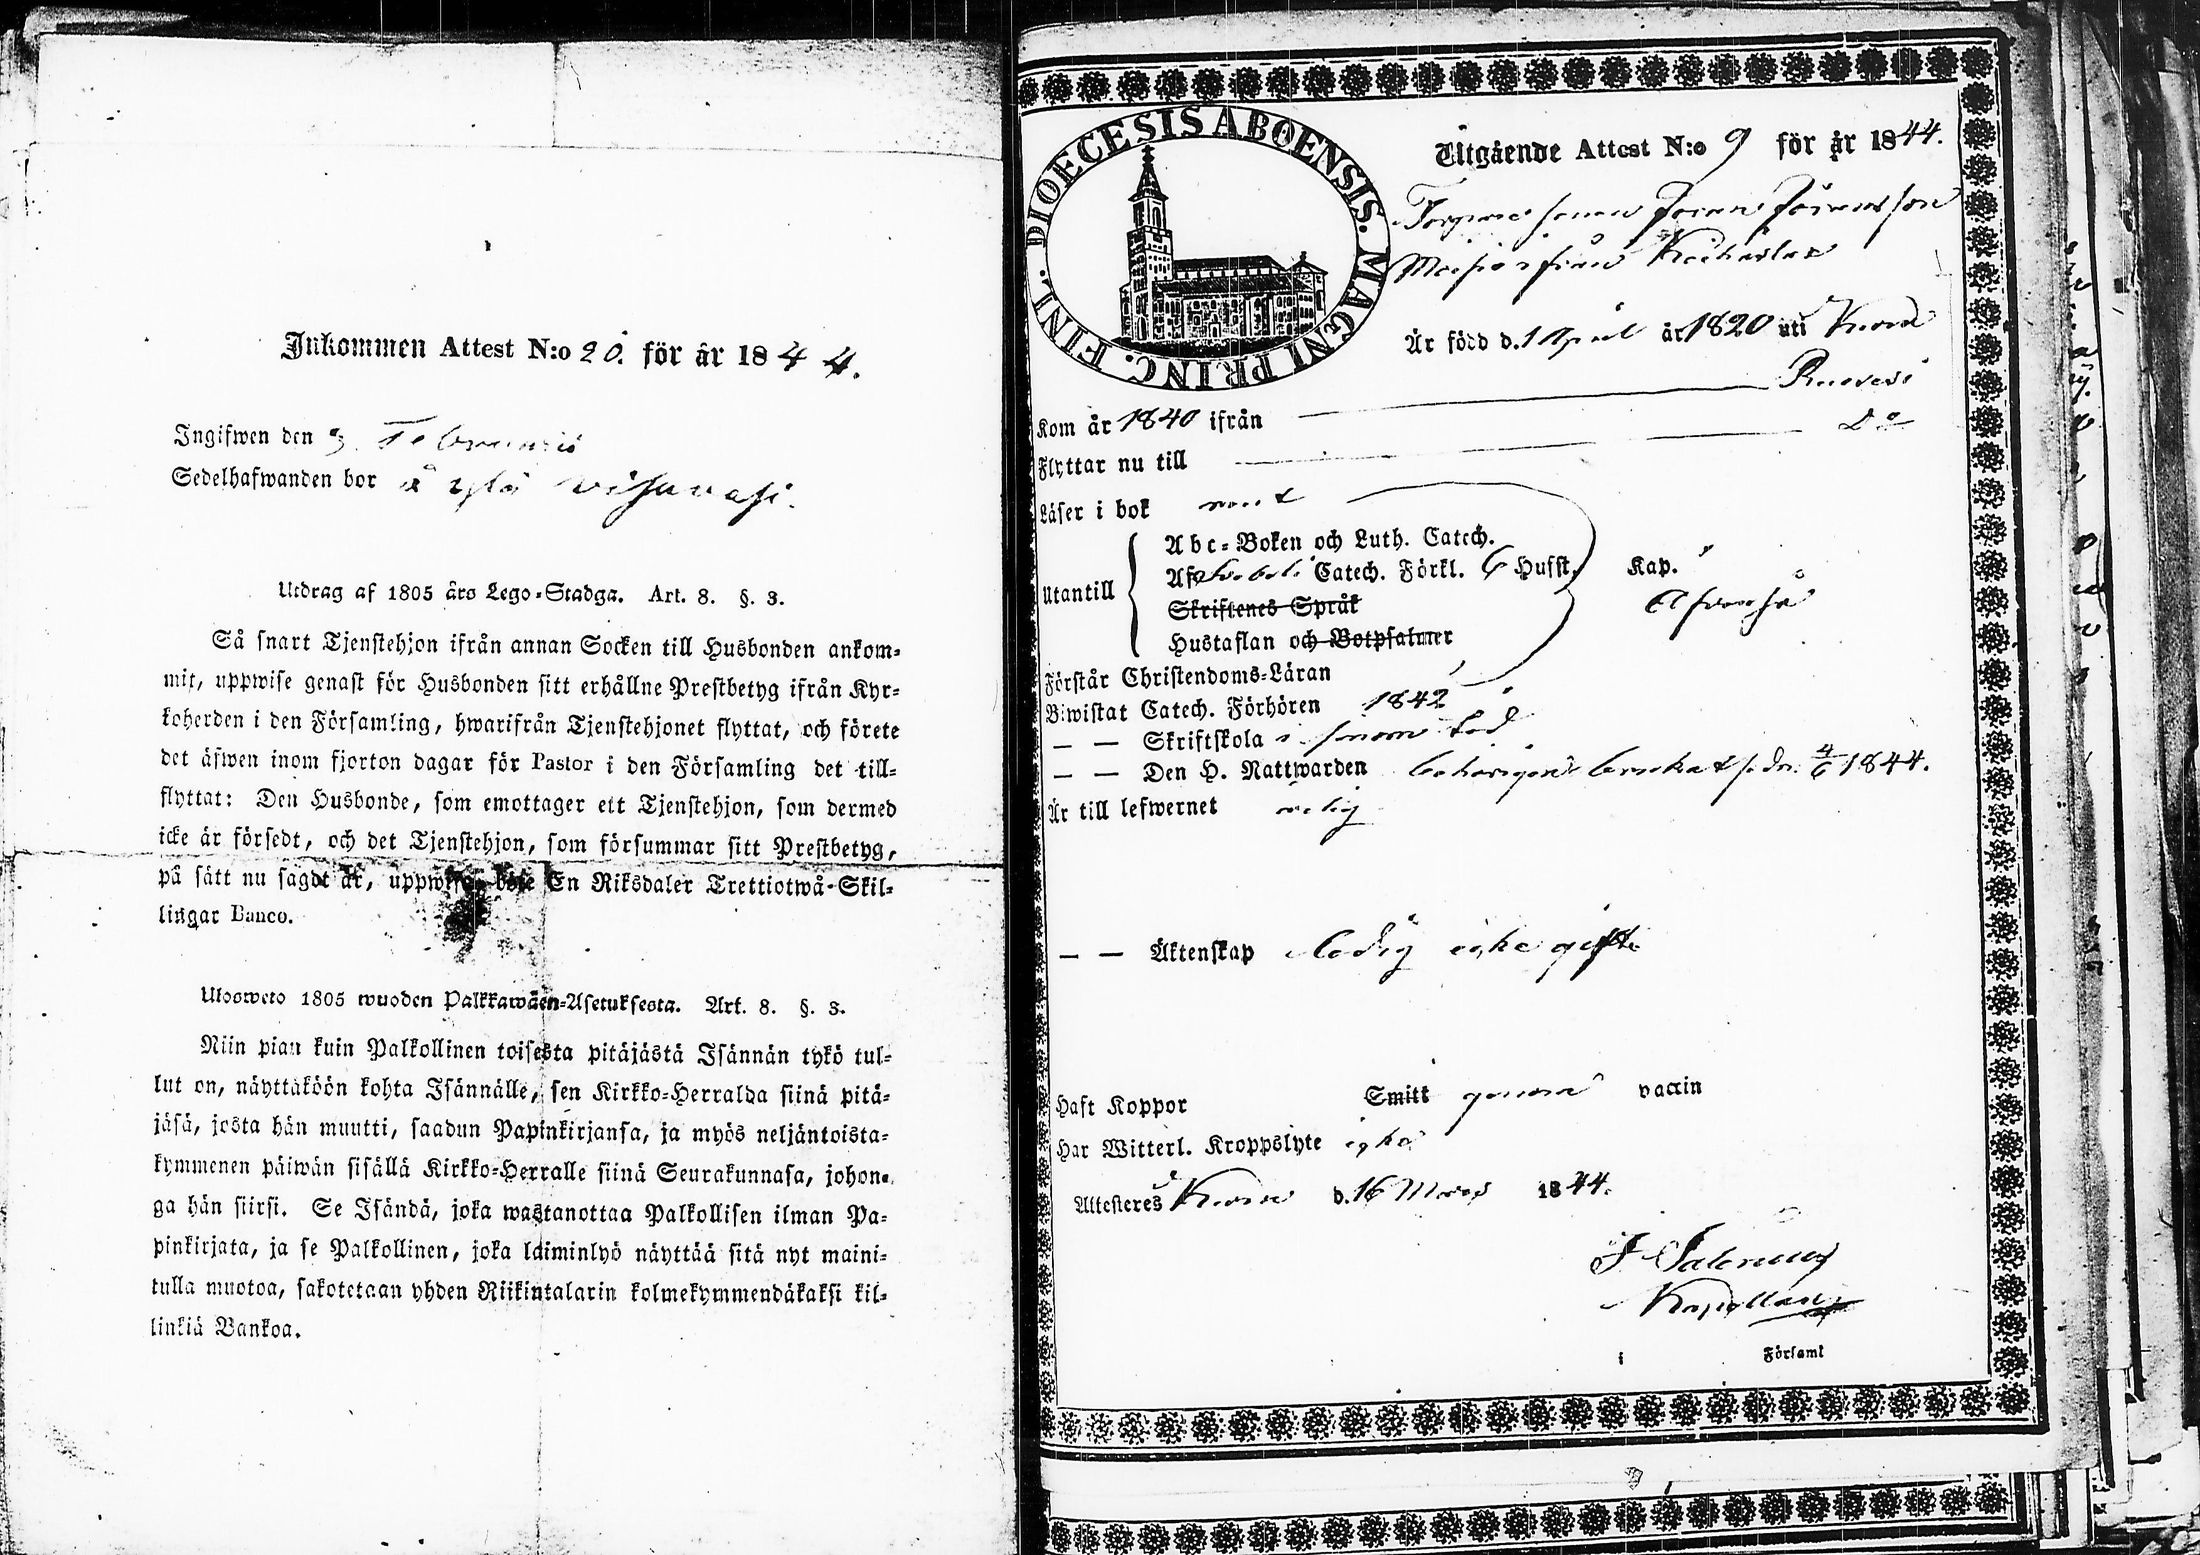 Inkommen Attest N:o 20. för år 1844.
Ingifwen den 3 Februarii
Sedelhafwanden bor å
Utdrag af 1805 års Lego-Stadga. Art. 8. §. 3.
Så snart Tjenstehjon ifrån annan Socken till Husbonden ankom-
mit, uppwise genast för Husbonden sitt erhållne Prestbetyg ifrån Kyr-
koherden i den Församling, hwarifrån Tjenstehjonet flyttat, och förete
det äfwen inom fjorton dagar för Pastor i den Församling det till-
flyttat: Den Husbonde, som emottager ett Tjenstehjon, som dermed
icke är försedt, och det Tjenstehjon, som försummar sitt Prestbetyg,
på sätt nu sagdt är, uppwisa, böte En Riksdaler Trettiotwå Skil-
lingar Banco.
Ulosweto 1805 wuoden Palkkawäen-Asetuksesta. Art. 8. §. 3.
Niin pian kuin Palkollinen toisesta pitäjästä Isännän tykö tul-
lut on, näyttäköön kohta Isännälle, sen Kirkko-Herralda siinä pitä-
jäsä, josta hän muutti, saadun Papinkirjansa, ja myös neljäntoista-
kymmenen päiwän sisällä Kirkko-Herralle siinä Seurakunnasa, johon-
ga hän siirsi. Se Isändä, joka wastanottaa Palkollisen ilman Pa-
pinkirjata, ja se Palkollinen, joka laiminlyö näyttää sitä nyt maini-
tulla muotoa, sakotetaan yhden Riikintalarin kolmekymmendäkaksi kil-
linkiä Bankoa.
DIOECESIS ABOENSIS. MAGNI PRINC. FINL.
Utgående Attest N:o 9 för år 1844.
Johan Johansson
ifrån
Är född d. 1 April år 1820 uti
Ruovesi
Kom år 1840 ifrån
Do
Flyttar nu till
Läser i bok
Abc-Boken och Luth. Catech.
Af Svebelii Catech. Förkl. 6 Husst. Kap.
Utantill
Skriftenes Språk
Hustaflan och Botpsalmer
Förstår Christendoms-Läran
Biwistat Catech. Förhören 1842
— — Skriftskola i sinom tid
— — Den H. Nattwarden behörigen brukat 1844.
Är till lefwernet
— — Äktenskap ledig icke gift
Haft Koppor Smitt genom vaccin
Har Witterl. Kroppslyte icke
Attesteres d. 16 Mars 1844.
Kapellan
i Församl